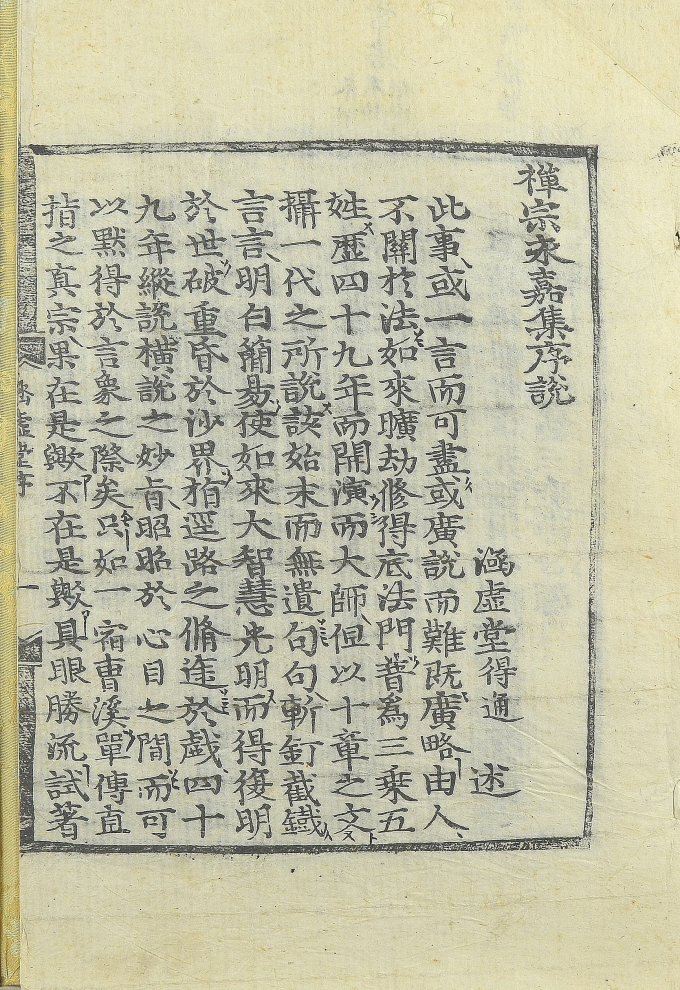 禪宗永嘉集序說
涵虛堂得通 述
此事或一言而可盡或廣說而難旣廣略由人
不關於法如來曠劫修得底法門普爲三乘五
姓歷四十九年而開演而大師但以十章之文
攝一代之所說該始末而無遺句句斬釘截鐵
言言明白簡易使如來大智慧光明而得復明
於世破重昏於沙界指逕路之脩途於戱四十
九年縱說橫說之妙旨昭昭於心目之間而可
以默得於言象之際矣只如一宿曹溪單傳直
指之眞宗果在是歟不在是歟具眼勝流試著
涵虛堂序 一